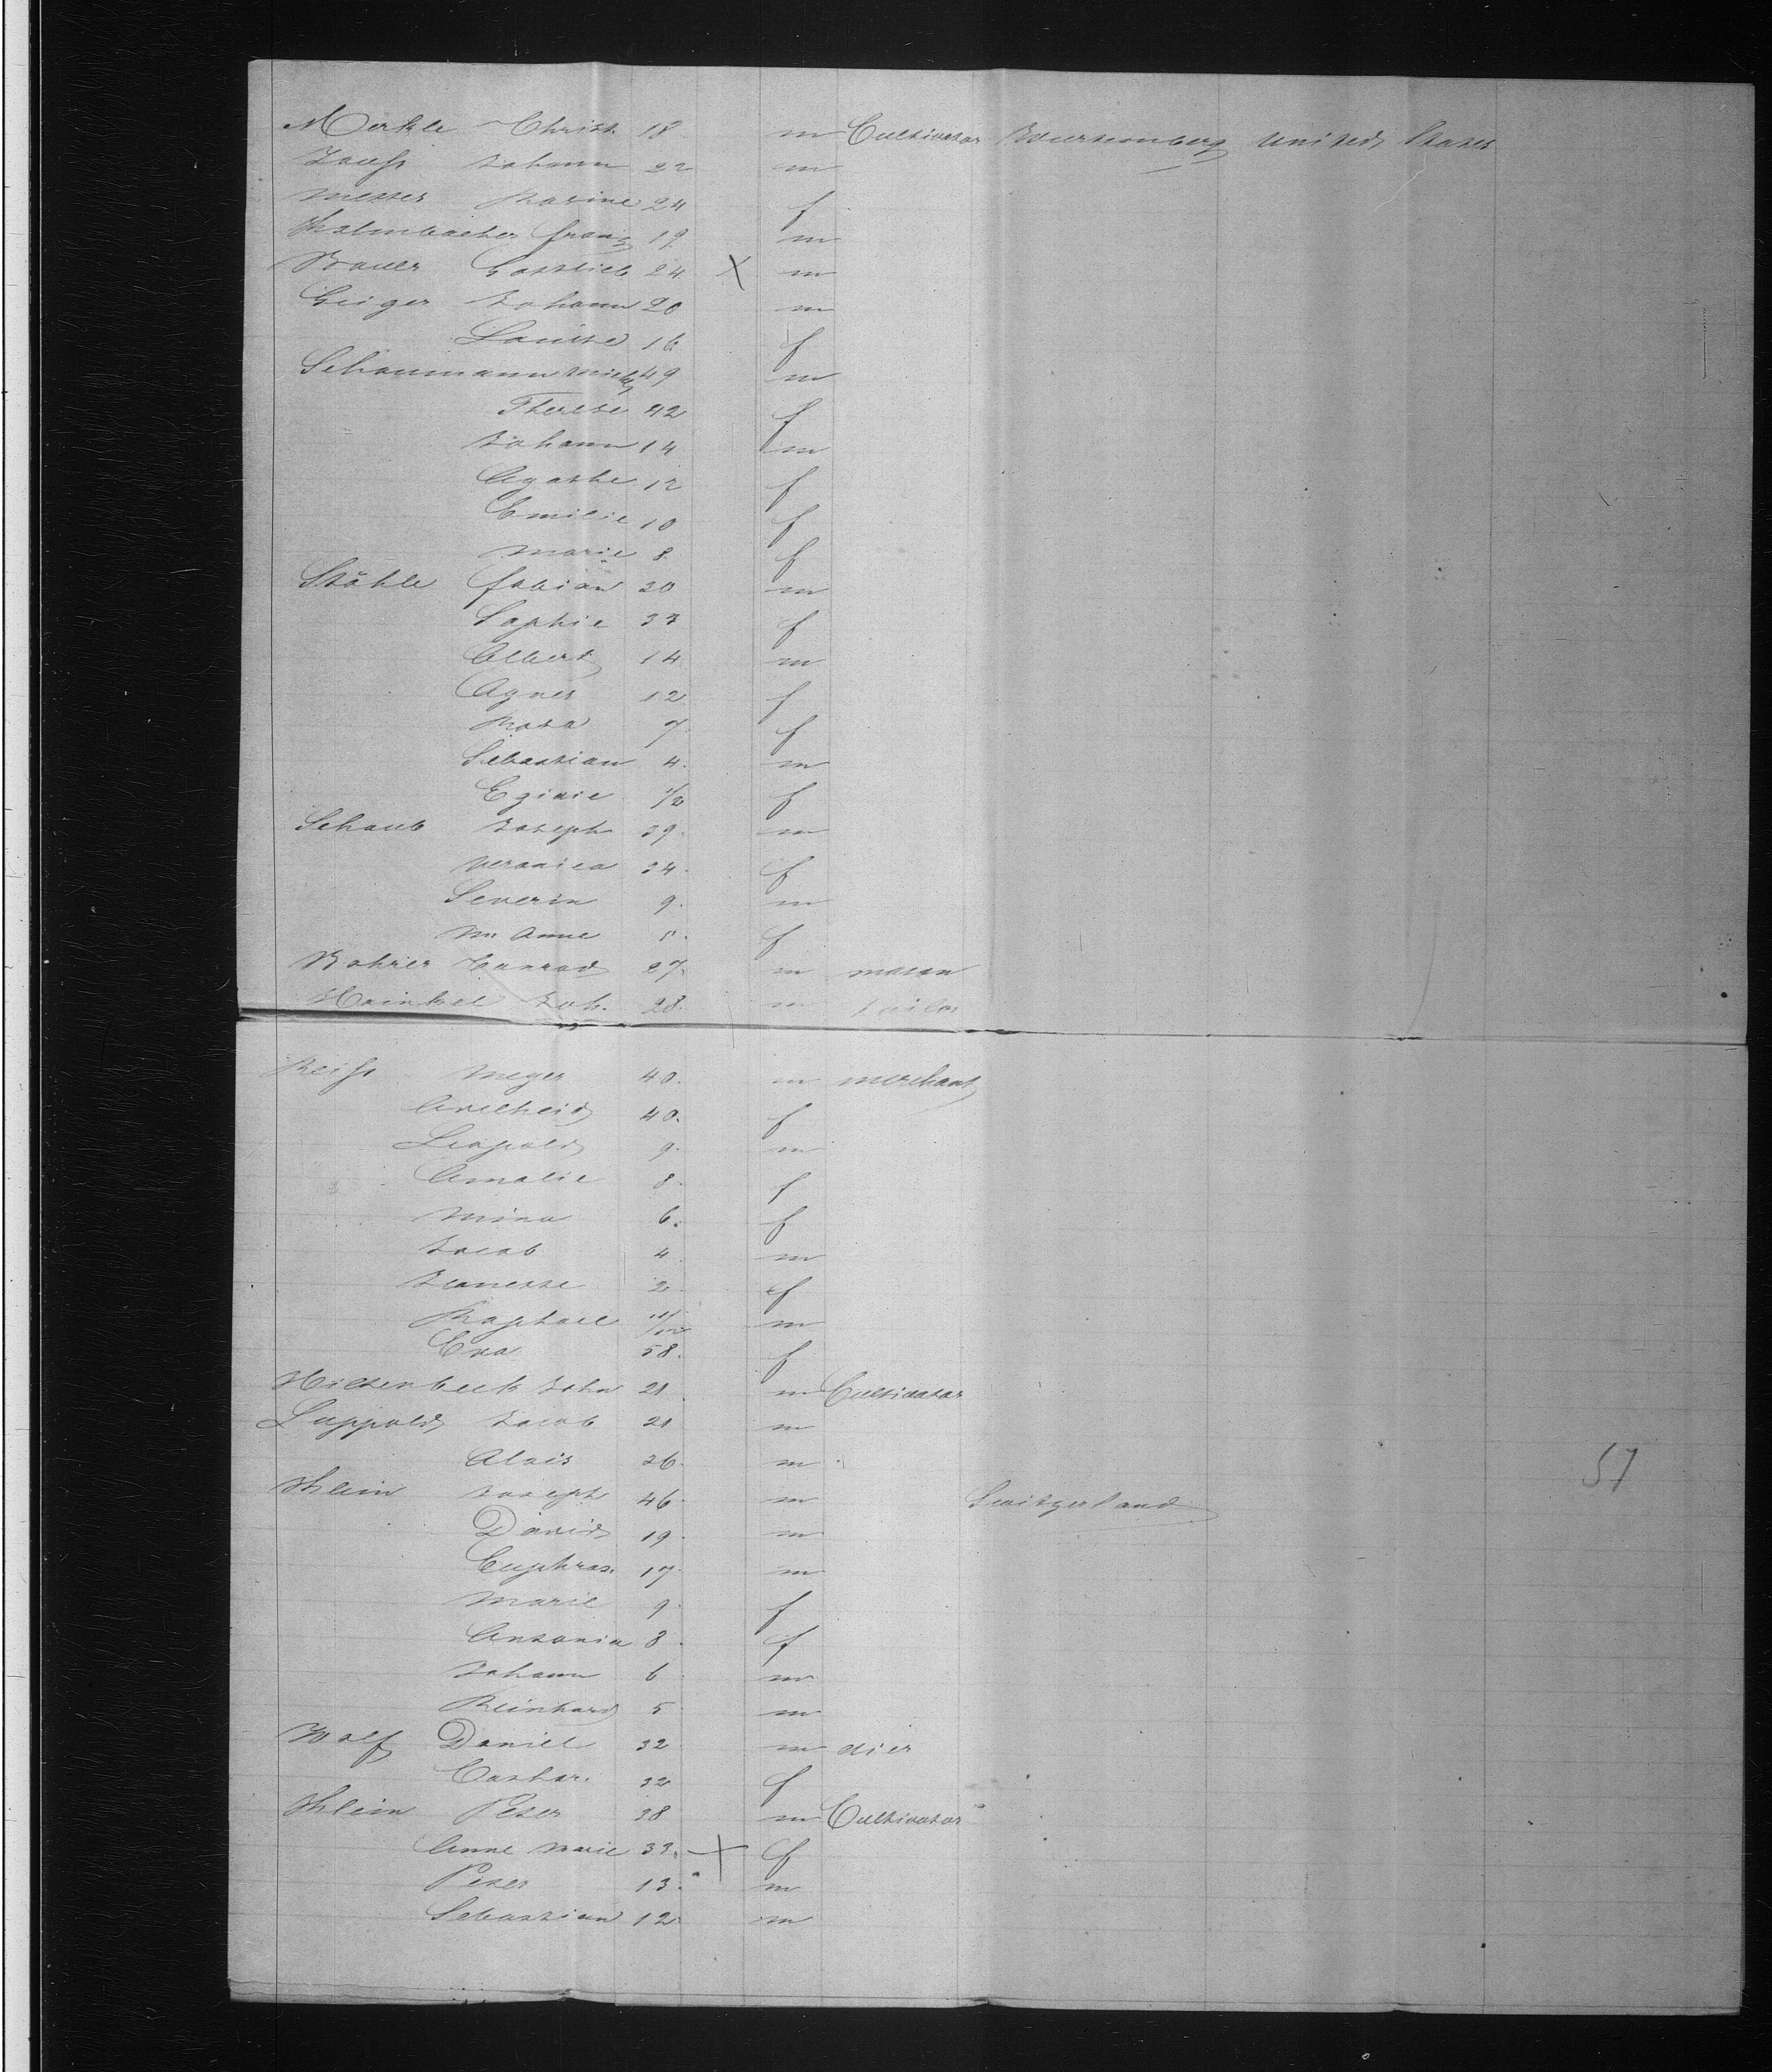 Merkle Christ. 18 m Cultivator Wurtemberg United States
Johann 22 m
Messer Rosine 24 f
Kalmbacher franz 19 m
Bauer Gottlieb 24 X m
Geiger Johann 20 m
Louise 16 f
Schaumann Mich 49 m
Therese 42 f
Johann 14 m
Agathe 12 f
Emilie 10 f
Marie 8 f
Stähle fabian 30 m
Sophie 37 f
Albert 14 m
Agnes 12 f
Rosa 7 f
Sebastian 4 m
1/2 f
Schaub Joseph 39 m
Veronica 34 f
Severin 9 m
M Anne f
Rohrer Conrad 27 m mason
Heinkel Joh. 28 m tailor
Reiss Meyer 40 m merchant
40 f
Leopold 9 m
Amalie 8 f
Mina 6 f
Jacob 4 m
Jeanette 2 f
Raphael 11/12 m
Eva 58 f
Hiltenbeck John 21 m Cultivator
Luppold Jacob 21 m
Alois 26 m
Klein Joseph 46 m Switzerland
David 19 m
Euphras. 17 m
Marie 9 f
Antonia 8 f
Johann 6 m
Reinhard 5 m
Wolf Daniel 32 m dier
Cathar. 32 f
Klein Peter 38 m Cultivator
Anne Marie 39 X f
Peter 13 m
Sebastian 12 m
57